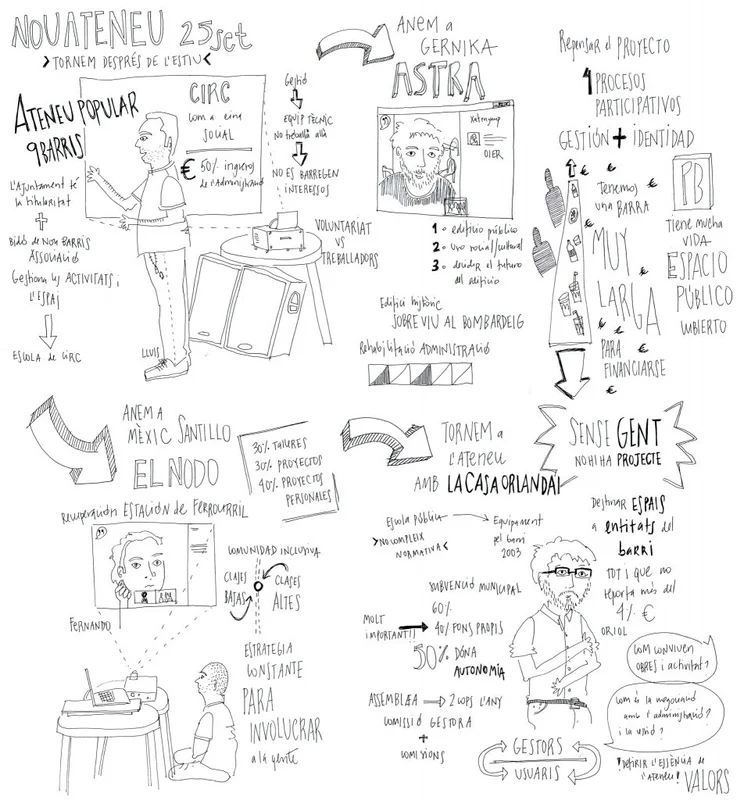 NOU ATENEU 25 set
>TORNEM DESPRÉS DE L'ESTIU<
ATENEU POPULAR
9BARRIS
L'Ajuntament té
la titularitat
+
Bidó de NOU BARRIS
ASSOCIACIÓ
Gestiona les ACTIVITATS i
L'ESPAI
ESCOLA de CIRC
CIRC
com a eina
SOCIAL
€ 50% ingresos
de l'Administració
LLUÍS
Gestió
EQUIP TÈCNIC
No treballa allà
NO ES BARREGEN
INTERESSOS
VOLUNTARIAT
VS
TREBALLADORS
ANEM a
GERNIKA
ASTRA
OIER
1. edificio público
2. uso social/cultural
3. decidir el futuro
del edificio
Edifici històric
SOBREVIU AL BOMBARDEIG
Rehabilitació ADMINISTRACIÓ
Repensar el PROYECTO
4 PROCESOS
PARTICIPATIVOS
GESTIÓN + IDENTIDAD
€
€
Tenemos
UNA BARRA
€
MUY
€
€
LARGA
€
PARA
FINANCIARSE
€
PB
Tiene mucha
VIDA
ESPACIO
PÚBLICO
CUBIERTO
ANEM a
MÈXIC SANTILLO
EL NODO
30% TALLERES
30% PROYECTOS
40% PROYECTOS
PERSONALES
recuperación ESTACIÓN de FERROCARRIL
FERNANDO
COMUNIDAD INCLUSIVA
CLASES
BAJAS
CLASES
ALTES
ESTRATEGIA
CONSTANTE
PARA
INVOLUCRAR
a la gente
TORNEM a
l'ATENEU
AMB LA CASA ORLANDAI
SENSE GENT
NO HI HA PROJECTE
Escola Pública
>NO COMPLEIX
NORMATIVA<
Equipament
pel barri
2003
SUBVENCIÓ MUNICIPAL
60%
MOLT
IMPORTANT!!
40% FONS PROPIS
50% DÓNA
AUTONOMÍA
ASSEMBLÆA 2 COPS L'ANY
COMISSIÓ GESTORA
+
COMISSIONS
ORIOL
GESTORS
USUARIS
Destinar ESPAIS
a entitats del
barri
TOT i que no
reporta més del
4% €
COM CONVIUEN
OBRES i activitat?
Com és la negociació
amb l'administració?
i la cessió?
!DEFINIR L'ESSÈNCIA de
l'ATENEU! VALORS